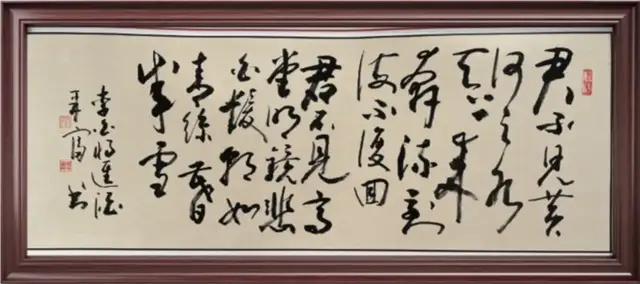 君不见黄
河之水
天上来
奔流到
海不復回
君不見高
堂明鏡悲
白髮朝如
青絲暮
成雪
李白将進酒
书